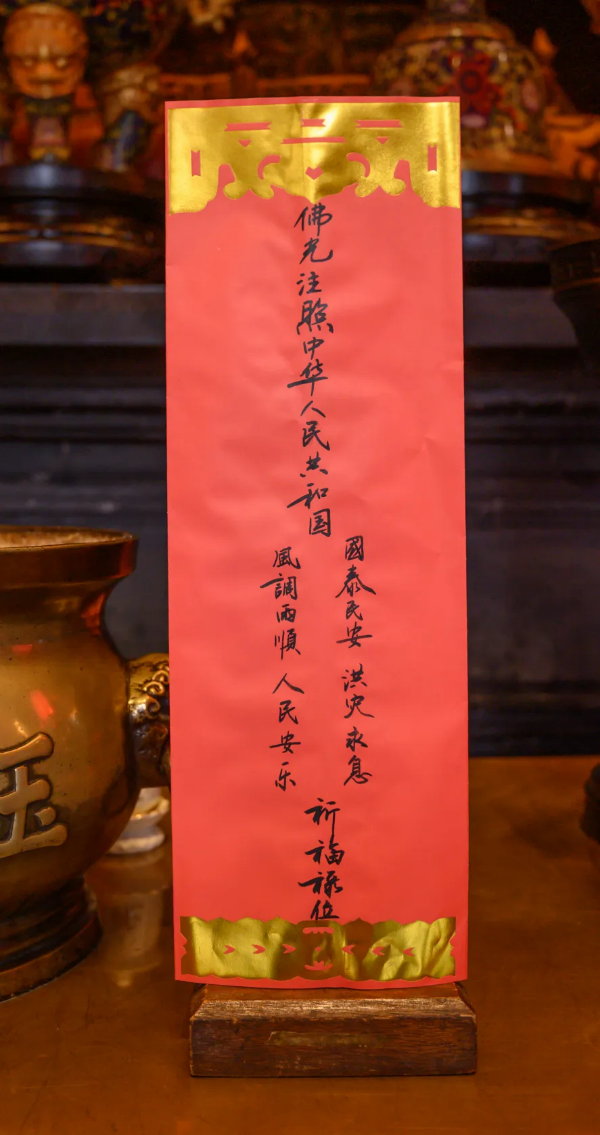 佛光注照中华人民共和国
國泰民安 洪灾永息
風調雨順 人民安乐
祈福禄位
玉